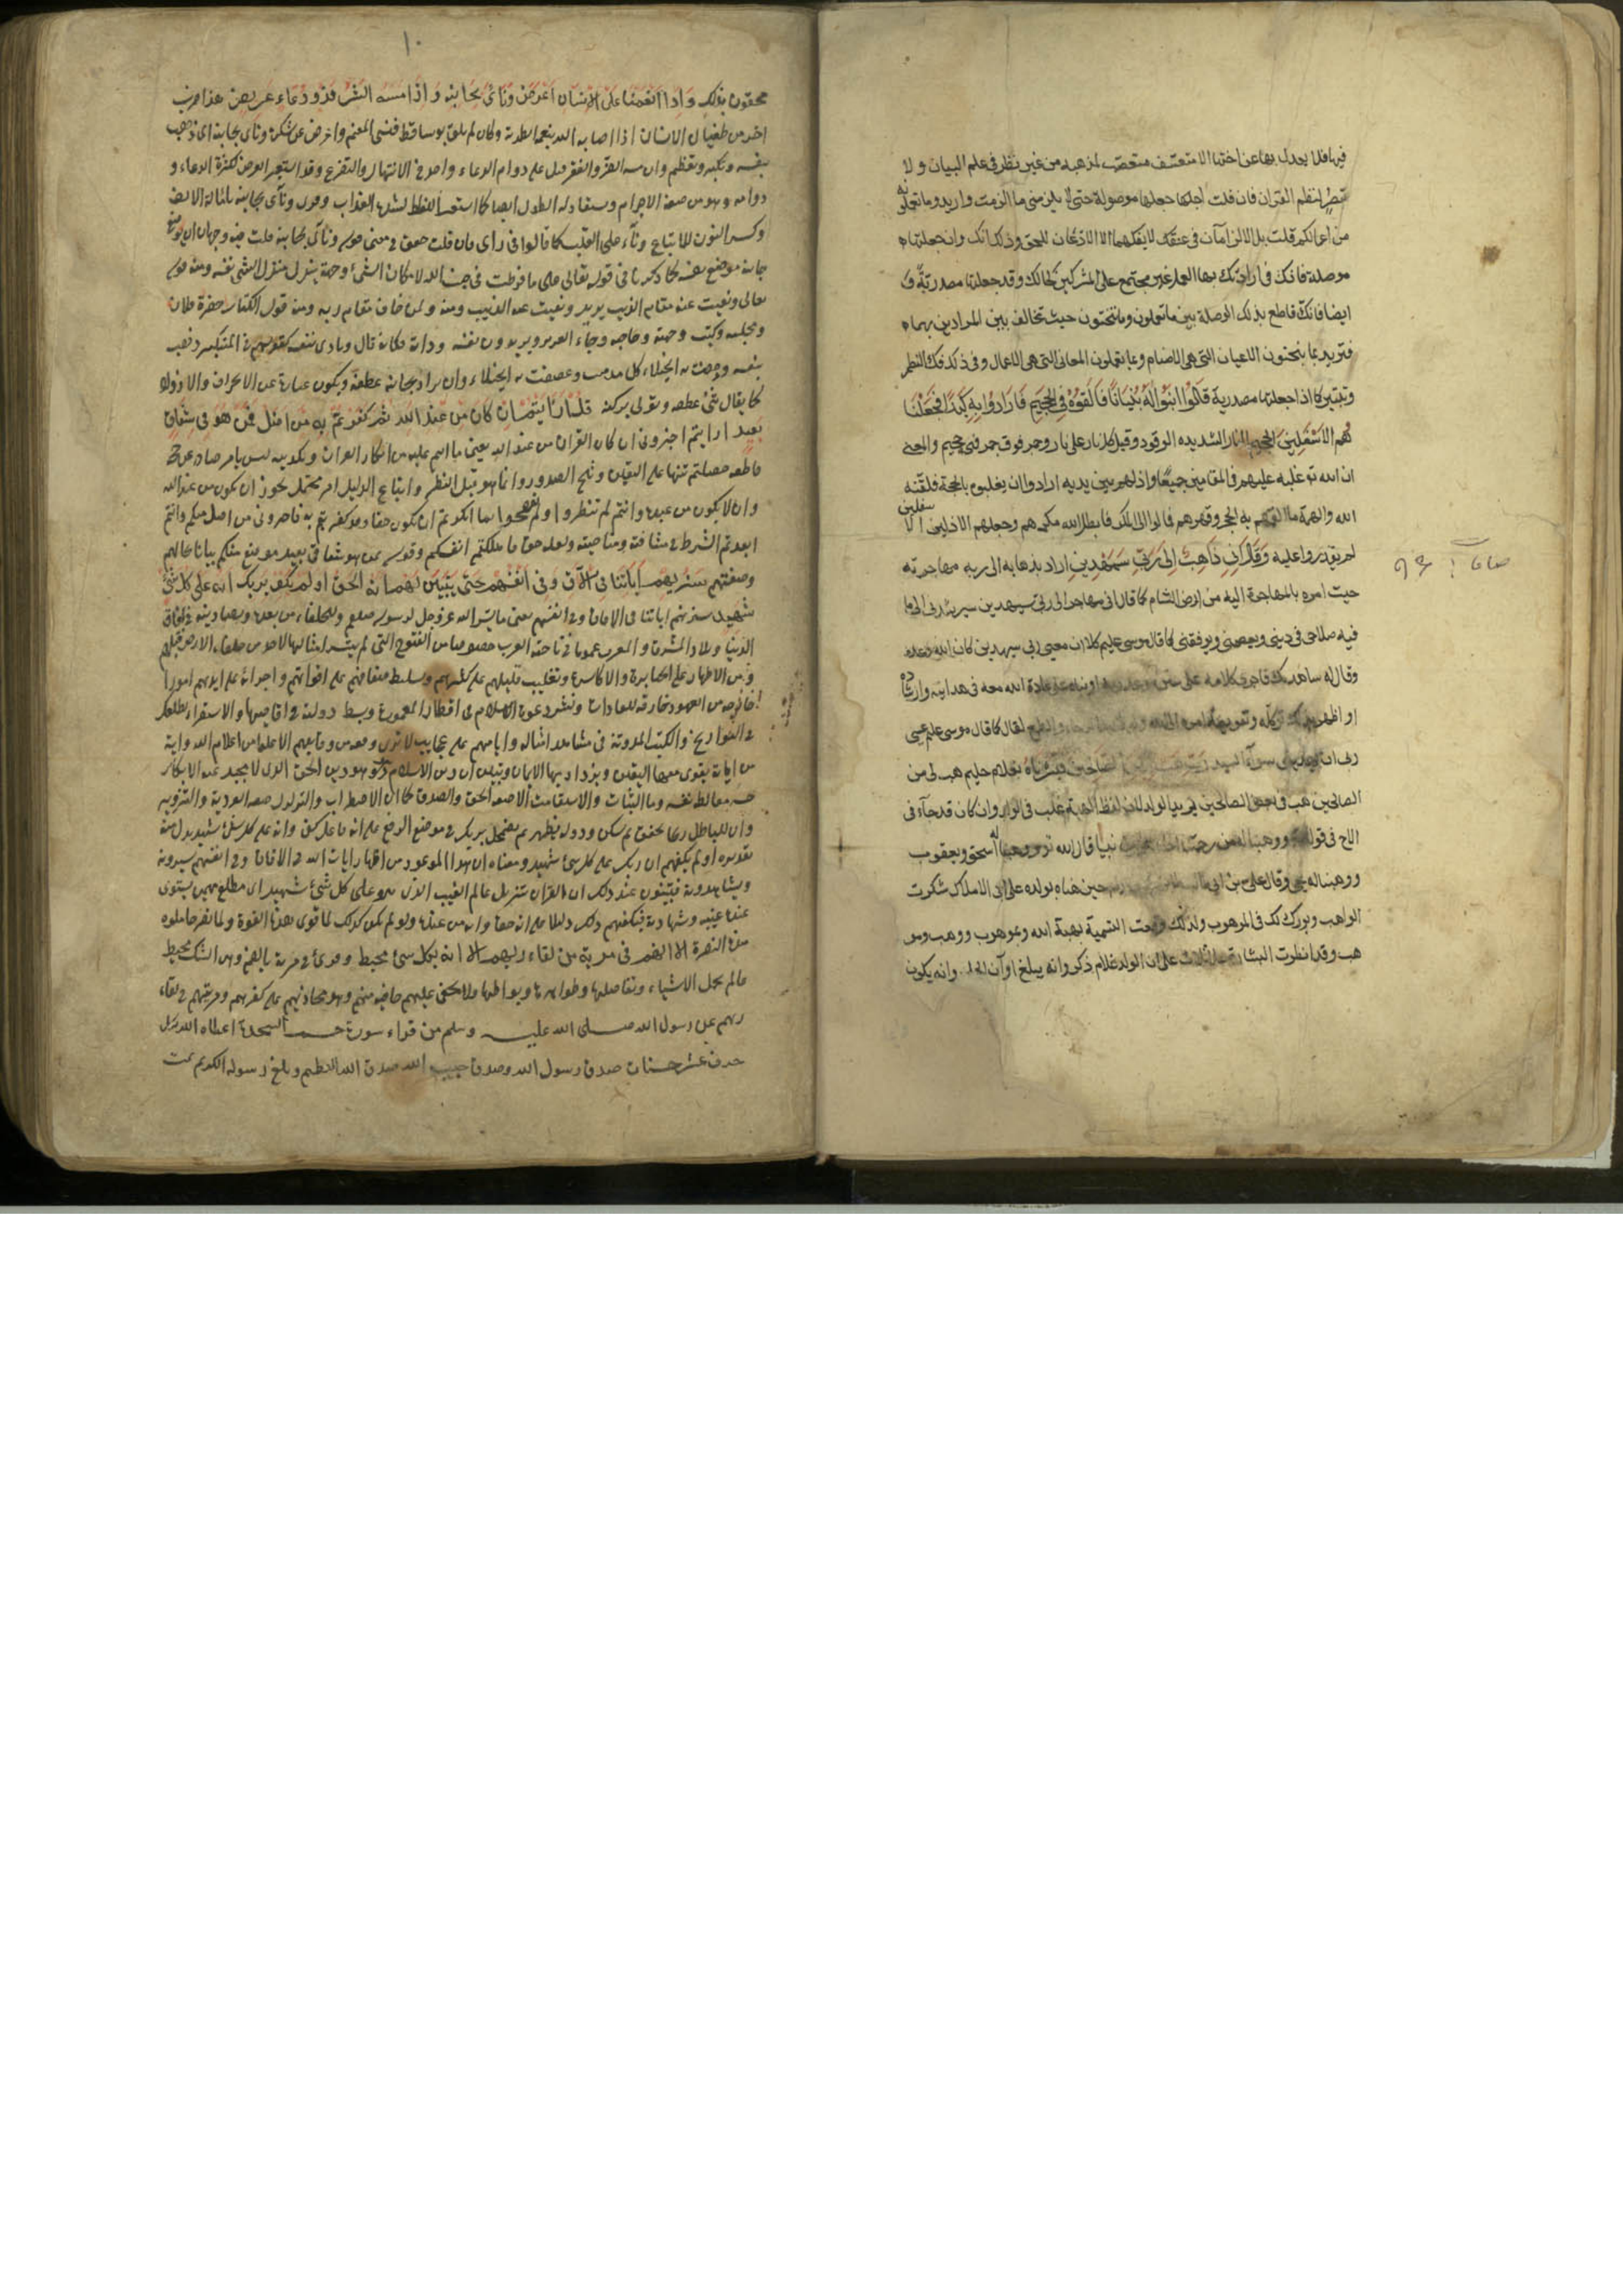 فيها فلا يعدل بها عن اختها الا متعسف متعصب لمذهبه من غير نظر في علم البيان ولا
تبصر لنظم القران فان قلت اجعلها موصولة حتى لا يلزمني ما الزمت واريد وما تعملونه
من اعمالكم قلت بل الالزامان في عنقك لا يفكهما الا الاذعان للحق وذلك انك وان جعلتها
موصلة فانك في ارادتك بها العمل غير محتج على المشركين كحالك وقد جعلتها مصدرية و
ايضا فانك قاطع بذلك الوصلة بين ما تعملون وما تنحتون حيث تخالف بين المرادين بهما
فتريد بما ينحتون الاعيان التي هي الاصنام وبما يعملون المعاني التي هي الاعمال وفي ذلك فك النظم
وتبتيره كما اذا جعلتها مصدرية قَالُوا ابْنُوا لَهُ بُنْيَانًا فَأَلْقُوهُ فِي الْجَحِيمِ فَأَرَادُوا بِهِ كَيْدًا فَجَعَلْنَا
هُمُ الْأَسْفَلِينَ الجحيم النار الشديده الوقود وقيل كل نار على نار وجمر فوق جمر فهي جحيم والمعنى
ان الله تع غلبه عليهم في المقامين جميعًا واذلهم بين يديه ارادوا ان يغلبوه بالحجة فلقنه
الله والهمه ما القمهم به الحجر وقهرهم فمالوا الى المكر فابطل الله مكرهم وجعلهم الاذلين الا
سفلين
لم يقدروا عليه وَقَالَ إِنِّي ذَاهِبٌ إِلَى رَبِّي سَيَهْدِينِ اراد بذهابه الى ربه مهاجرته
حيث امره بالمهاجرة اليه من ارض الشام كما قال اني مهاجر الى ربي سيهدين سيرشدني الى ما
فيه صلاحي في ديني ويعصمني ويوفقني كما قال موسى عليم كلا ان معي ربي سيهدين كان الله وعده
وقال له ساهديك فاجرى كلامه على سنن
او اظهر بذلك توكله وتفويضه امره الى الله
لقال كما قال موسى عليم عسى
ربى ان يهديني سواء السبيل
الصالحين فبشرناه بغلام حليم هب لى من
الصالحين هب لى بعض الصالحين يريد الولد لان لفظ الهبة غلب فى الولد وان كان قد جاء فى
الاخ فى قوله ووهبنا له من رحمتنا
نبيا قال الله تع ووهبنا له اسحق ويعقوب
ووهبنا له يحيى وقال على بن ابى
حين هناه بولده على ابى الاملاك شكرت
الواهب وبورك لك فى الموهوب ولذلك وقعت التسمية بهبة الله وبموهوب ووهب ومو
هب وقد انطوت البشارة على ثلاث على ان الولد غلام ذكر وانه يبلغ اوان الحلم وانه يكون
١٠
محقون بذلك وَإِذَا أَنْعَمْنَا عَلَى الْإِنْسَانِ أَعْرَضَ وَنَأَى بِجَانِبِهِ وَإِذَا مَسَّهُ الشَّرُّ فَذُو دُعَاءٍ عَرِيضٍ هذا ضرب
اخر من طغيان الانسان اذا اصابه الله بنعمة ابطرته وكان لم يلق بوسا قط فنسى المنعم واعرض عن شكره ونأى بجانبه اى ذهب
بنفسه وتكبر وتعظم وان مسه الضر والفقر اقبل على دوام الدعاء واخذ فى الابتهال والتضرع وقد استعير العرض لكثرة الدعاء و
دوامه وهو من صفة الاجرام ويستعار له الطول ايضا كما استعير الغلظ لشدة العذاب وقرى وناى بجانبه بامالة الالف
وكسر النون للاتباع وناء على القلب كما قالوا فى راى فان قلت حقق لى معنى قوله وناى بجانبه قلت فيه وجهان ان يوضع
جانبه موضع نفسه كما ذكرنا فى قوله تعالى على ما فرطت فى جنب الله لا مكان الشىء وجهته ينزل منزل الشى نفسه ومنه قوله
ونفيت عنه مقام الذيب يريد ونفيت عنه الذيب ومنه ولمن خاف مقام ربه ومنه قول الكتاب حضرة فلان
ومجلسه وكتبت وجهته وجانبه وجاه العزيز ويريدون نفسه وذاته فكانه قال وناى بنفسه كقولهم فى المتكبر ذهب
بنفسه وذهبت به الخيلاء كل مذهب وعصفت به الخيلاء وان يراد بجانبه عطفه ويكون عبارة عن الانحراف والازورار
كما يقال ثنى عطفه وتولى بركنه قُلْ أَرَأَيْتُمْ إِنْ كَانَ مِنْ عِنْدِ اللَّهِ ثُمَّ كَفَرْتُمْ بِهِ مَنْ أَضَلُّ مِمَّنْ هُوَ فِي شِقَاقٍ
بَعِيدٍ ارايتم اخبرونى ان كان القران من عند الله يعنى ما انتم عليه من انكار القران وتكذيبه ليس بامر صادر عن حجة
قاطعة حصلتم منها على اليقين وثلج الصدور وانما هو قبل النظر واتباع الدليل امر محتمل يجوز ان يكون من عند الله
وان لا يكون من عنده وانتم لم تنظروا ولم تفحصوا فما انكرتم ان يكون حقا وقد كفرتم به فاخبرونى من اضل منكم وانتم
ابعدتم الشوط فى مشاقته ومناصبته ولعله حق فاهلكتم انفسكم وقوله ممن هو فى شقاق بعيد موضوع موضع منكم بيانا لحالهم
وصفتهم سَنُرِيهِمْ آيَاتِنَا فِي الْآفَاقِ وَفِي أَنْفُسِهِمْ حَتَّى يَتَبَيَّنَ لَهُمْ أَنَّهُ الْحَقُّ أَوَلَمْ يَكْفِ بِرَبِّكَ أَنَّهُ عَلَى كُلِّ شَيْءٍ
شَهِيدٌ سنريهم اياتنا فى الافاق وفى انفسهم يعنى ما يسر الله عز وجل لرسوله صلعم وللخلفاء من بعده ونصار دينه فى افاق
الدنيا وبلاد المشرق والمغرب عموما وفى ناحة العرب خصوصا من الفتوح التى لم يتيسر امثالها لاحد من خلفاء الارض قبلهم
ومن الاظهار على الجبابرة والاكاسرة وتغليب قليلهم على كثيرهم وتسليط ضعافهم على اقويائهم واجرائه على ايديهم امورا
خارجه من المعهود خارقه للعادات ونشر دعوة الاسلام فى اقطار المعمورة وبسط دولته فى اقاصيها والاستقراء يطلعك
فى التواريخ والكتب المدونة فى مشاهد اهله وايامهم على عجايب لا ترى وقعة من وقايعهم الا علما من اعلام الله واية
من اياته يقوى معها اليقين ويزداد بها الايمان ويتبين ان دين الاسلام هو دين الحق الذى لا يحيد عنه الا مكابر
حسه مغالط نفسه وما الثبات والاستقامة الا صفة الحق والصدق كما ان الاضطراب والتزلزل صفة الفرية والتزوير
وان للباطل ريحا تخفق ثم تسكن ودولة تظهر ثم تضمحل بربك فى موضع الرفع على انه فاعل كفى وانه على كل شىء شهيد بدل منه
تقديره اولم يكفهم ان ربك على كل شىء شهيد ومعناه ان هذا الموعود من اظهار ايات الله فى الافاق وفى انفسهم سيرونه
ويشاهدونه فيتبينون عند ذلك ان القران تنزيل عالم الغيب الذى هو على كل شىء شهيد اى مطلع مهيمن يستوى
عنده غيبه وشهادته فيكفيهم ذلك دليلا على انه حق وانه من عنده ولو لم يكن كذلك لما قوى هذه القوة ولما نصر حاملوه
هذه النصرة أَلَا إِنَّهُمْ فِي مِرْيَةٍ مِنْ لِقَاءِ رَبِّهِمْ أَلَا إِنَّهُ بِكُلِّ شَيْءٍ مُحِيطٌ وقرئ فى مرية بالضم وهى الشك محيط
عالم بجمل الاشياء وتفاصيلها وظواهرها وبواطنها فلا تخفى عليهم خافية منهم وهو مجازيهم على كفرهم ومريتهم فى لقاء
ربهم عن رسول الله صلى الله عليه وسلم من قراء سورة حم السجدة اعطاه الله بكل
حرف عشر حسنات صدق رسول الله وصدق حبيب الله صدق الله العظيم وبلغ رسوله الكريم تمت